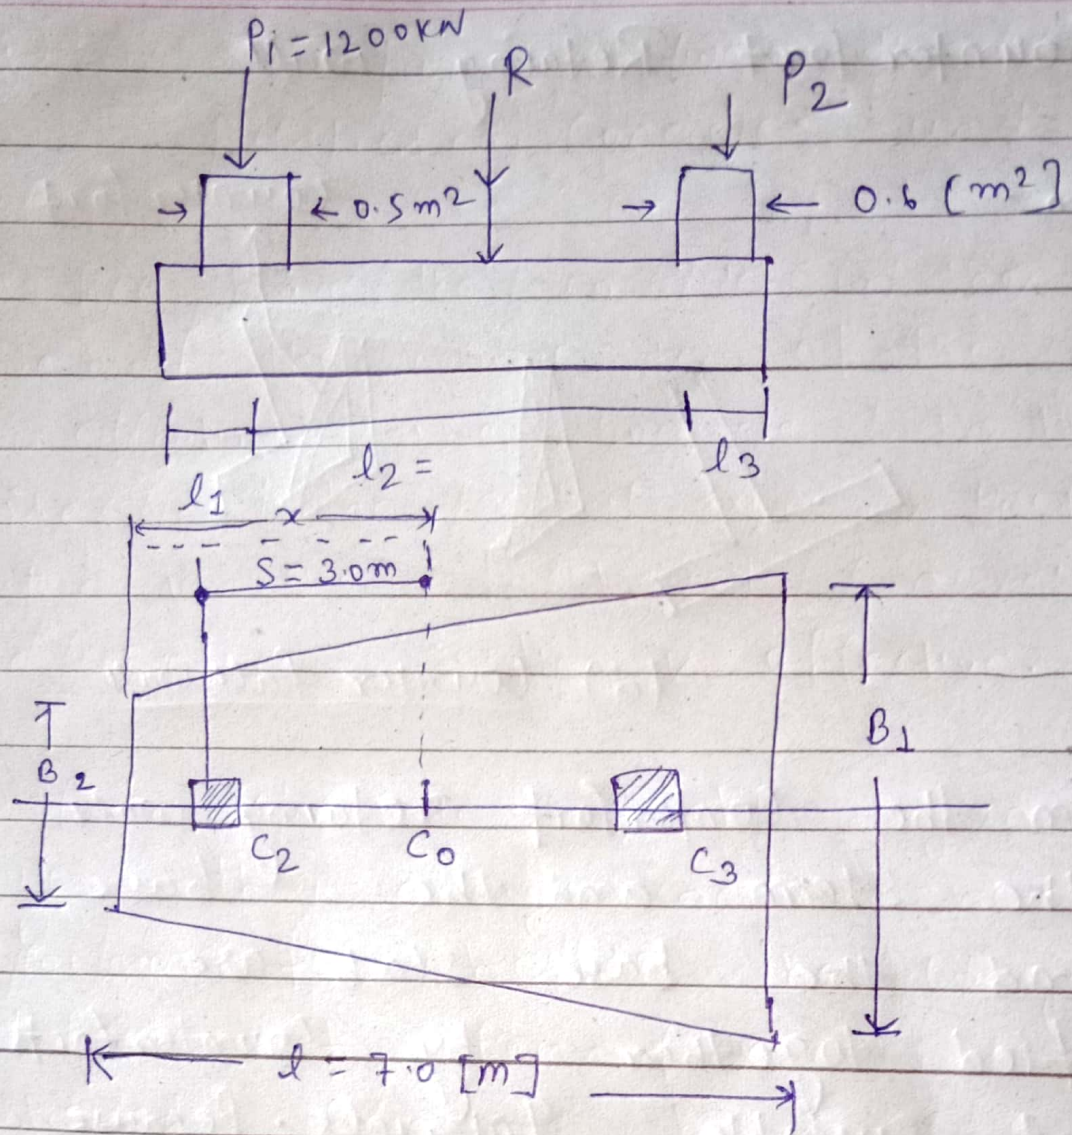 Pi = 1200KN
R
P2
→ ← 0.5m²
→ ← 0.6 [m²]
l1
l2 =
l3
x
S = 3.0m
B2
B1
C2
C0
C3
l = 7.0 [m]